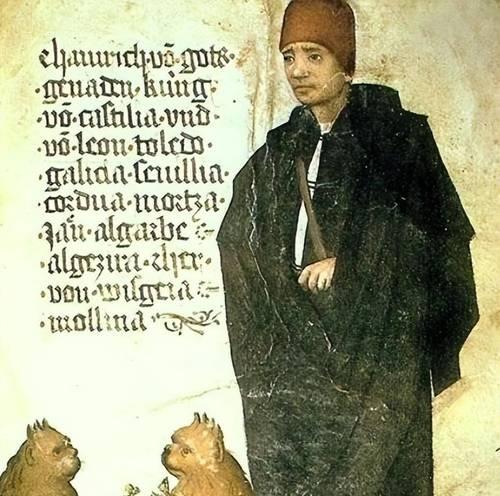 Hainrich · võ · gots ·
· genaden · kůng ·
võ · castilia · vnd
võ · leon · toledo ·
galicia · seuillia
cordua · mortza ·
· Jañ · algarbe
· algezira · Her ·
von · wisgeia
· mollina ·